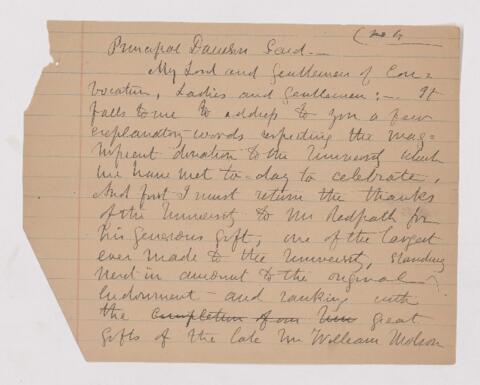 Principal Dawson said—
My Lord and Gentlemen of Con=
vocation, Ladies and Gentlemen:— It
falls to me to address to you a few
explanatory words respecting the mag=
nificent donation to the University which
we have met to-day to celebrate.
And first I must return the thanks
of the University to Mr Redpath for
his generous gift, one of the largest
ever made to the University, standing
next in amount to the original
Endowment and ranking with
the completion of our great
gifts of the late Mr William Molson